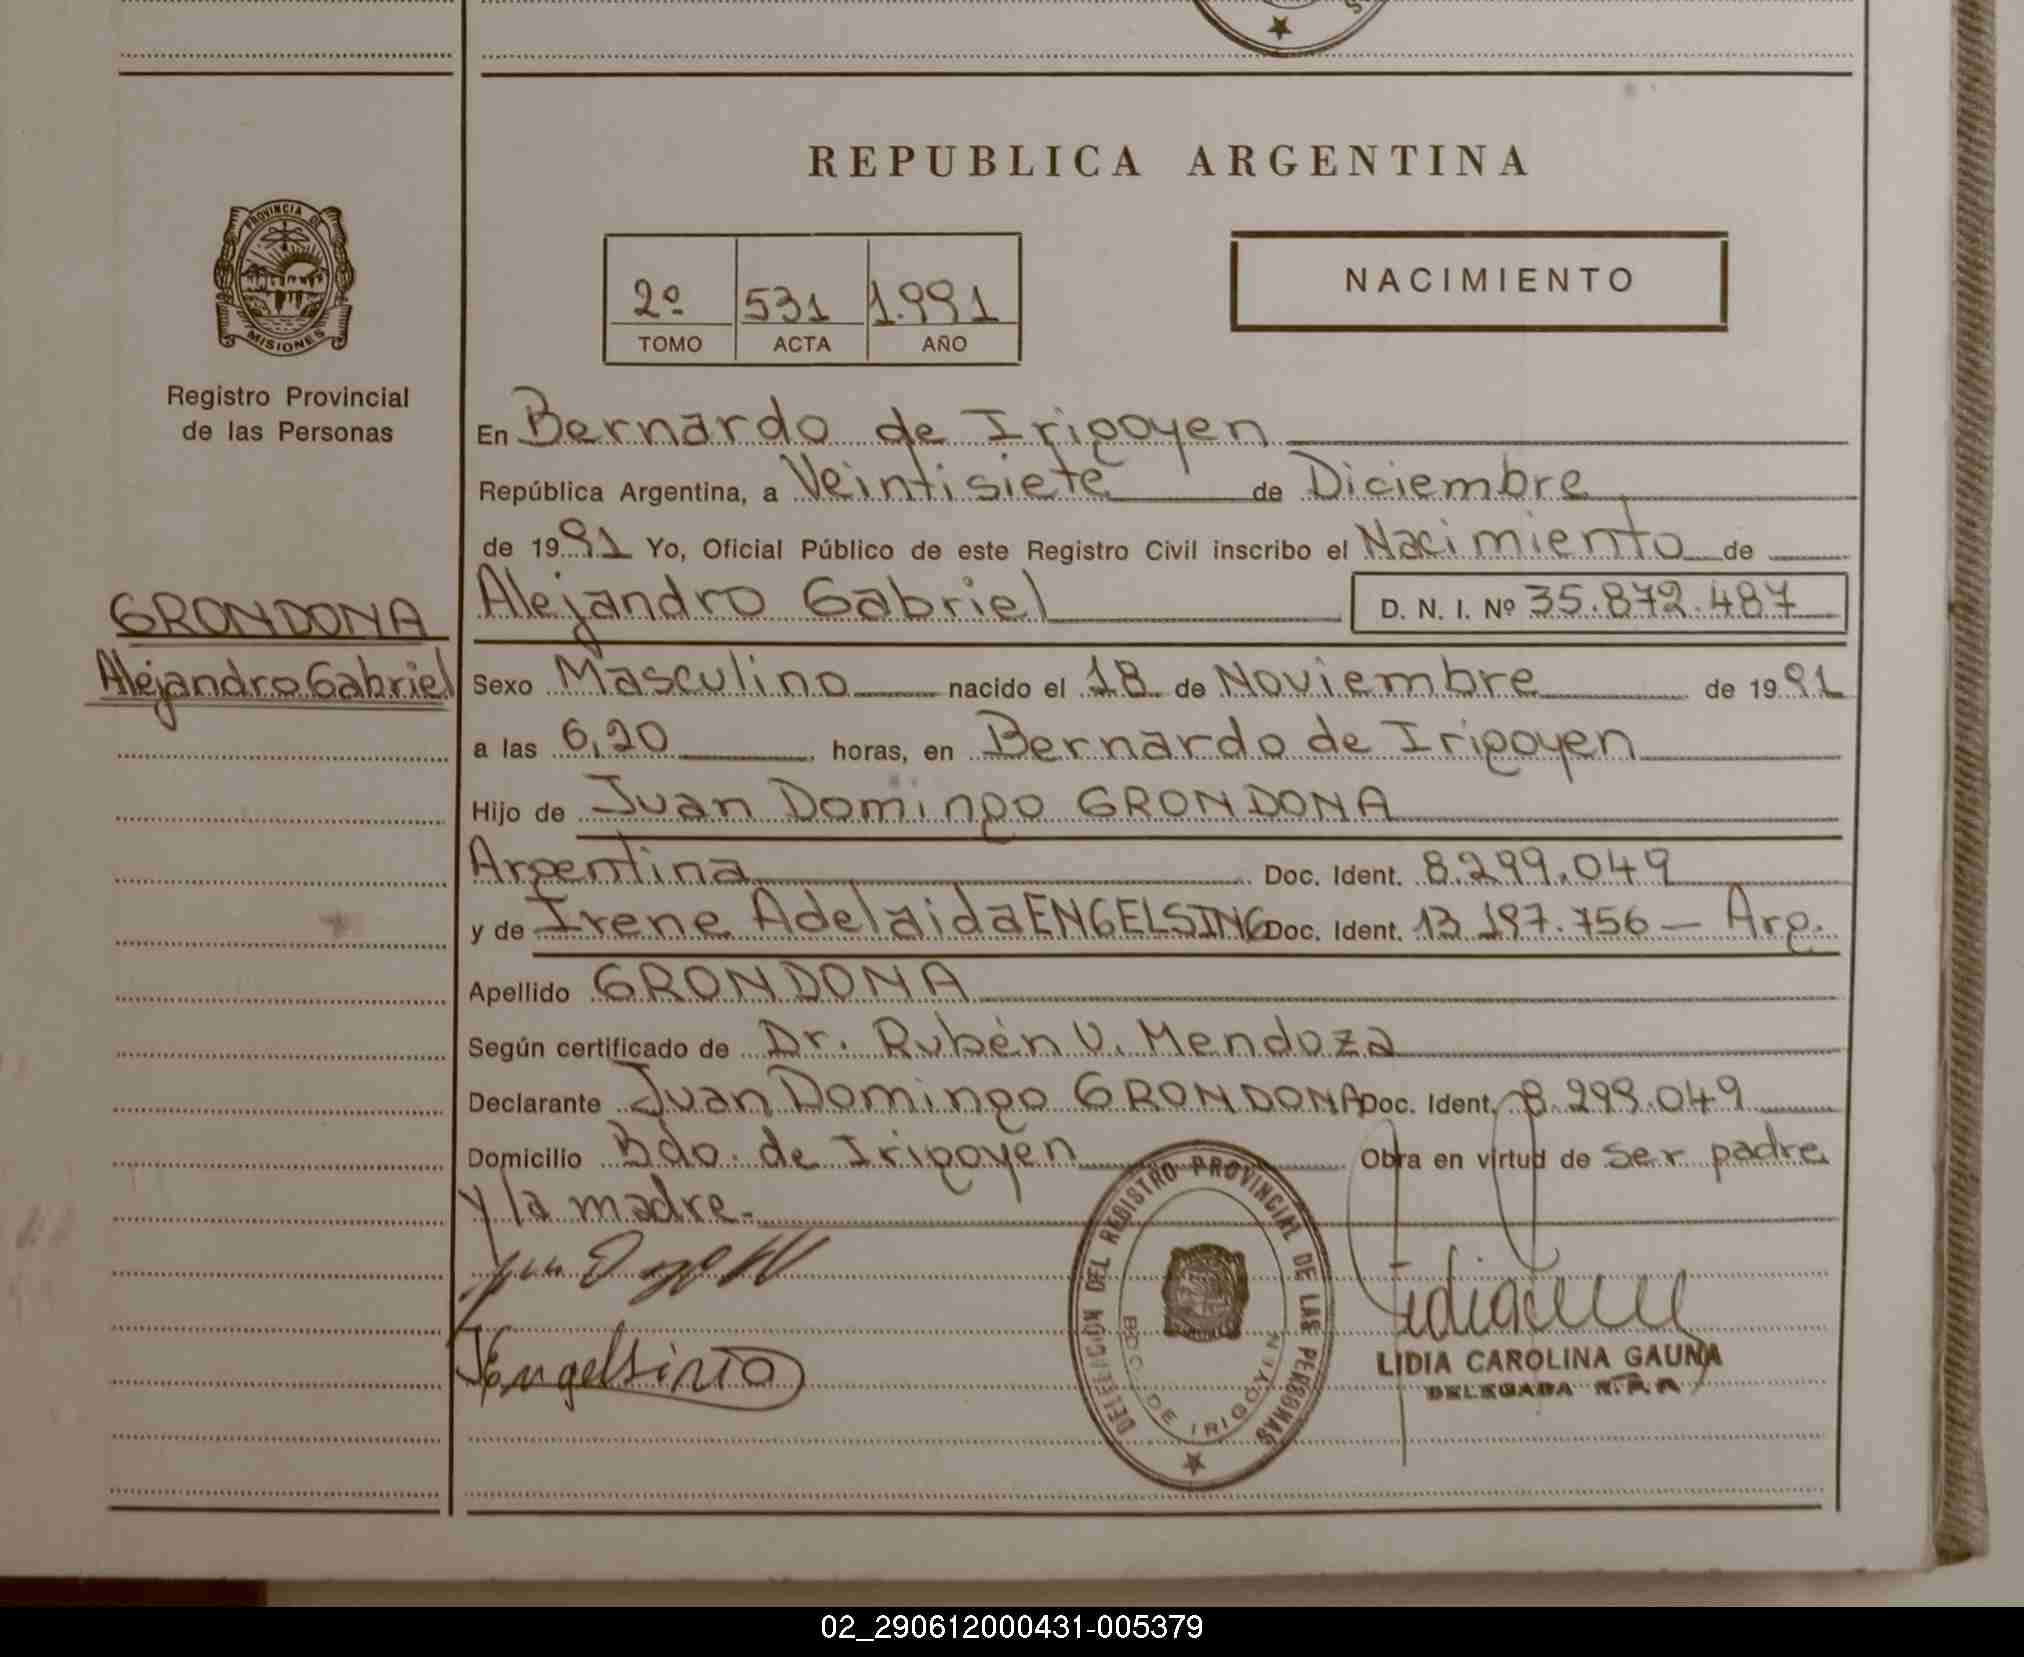 REPUBLICA ARGENTINA
PROVINCIA DE
MISIONES
Registro Provincial
de las Personas
2º 531 1.991
TOMO ACTA AÑO
NACIMIENTO
En Bernardo de Irigoyen
República Argentina, a Veintisiete de Diciembre
de 1991 Yo, Oficial Público de este Registro Civil inscribo el Nacimiento de
GRONDONA
Alejandro Gabriel
Alejandro Gabriel D. N. I. Nº 35.872.487
Sexo Masculino nacido el 18 de Noviembre de 1991
a las 6,20 horas, en Bernardo de Irigoyen
Hijo de Juan Domingo GRONDONA
Argentina Doc. Ident. 8.299.049
y de Irene Adelaida ENGELSING Doc. Ident. 13.197.756 — Arg.
Apellido GRONDONA
Según certificado de Dr. Rubén V. Mendoza
Declarante Juan Domingo GRONDONA Doc. Ident. 8.299.049
Domicilio Bdo. de Irigoyen Obra en virtud de ser padre
y la madre.
DELEGACION DEL REGISTRO PROVINCIAL DE LAS PERSONAS
BDO. DE IRIGOYEN
LIDIA CAROLINA GAUNA
DELEGADA R.P.P.
02_290612000431-005379